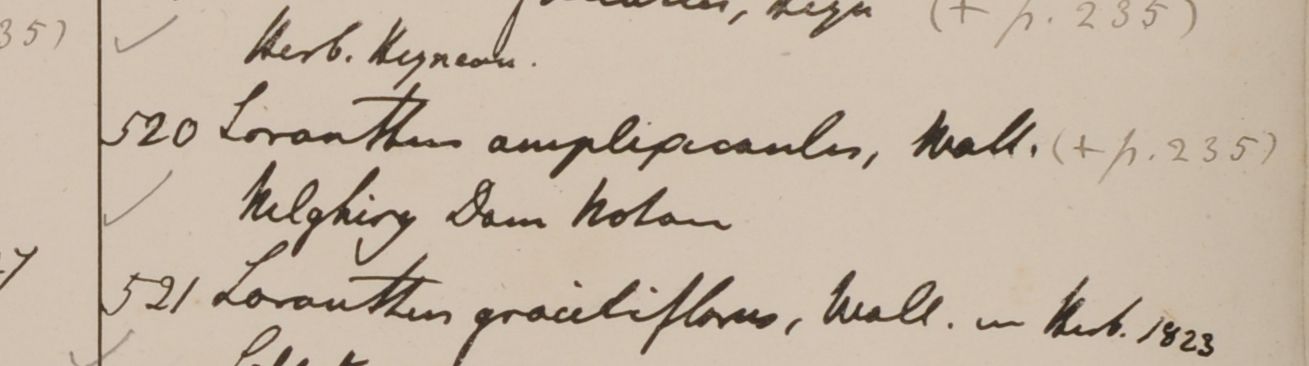 35) Heyn (+ p. 235)
Herb. Heyneau.
520 Loranthus amplexicaulis, Wall. (+ p. 235)
Nelghiry Dom Noton
521 Loranthus graciliflorus, Wall. in Herb. 1823